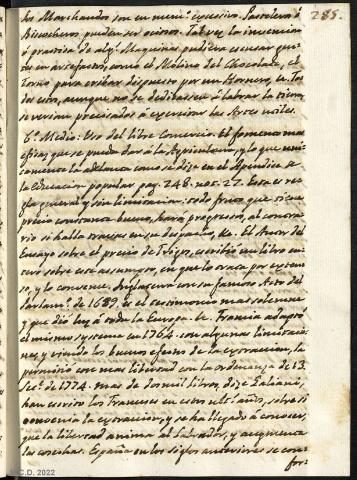 285.
los Marchandos son en numº excesivo. Pasteleros ô
Biscocheros pueden ser ociosos. Tal vez la invencion
ô practica de algˢ Maquinas pudiera escusar gen-
te en artefactos, como el Molino del Chocolate, el
torno para cribar dispuesto por un Hornero, &. To-
dos estos, aunque no se dedicasen â labrar la tierra,
se verian precisados â exercitar las Artes utiles.
6º Medio: Uso del libre Comercio. El fomento mas
eficaz que se puede dar â la Agricultura, y lo que uni-
camente la adelanta como se dize en el Apendice â
la Educacion popular pag. 248. not. 27. Esta es re-
gla general y sin limitacion: todo fruto que tiene
precio constante bueno, hará progresos, al contra-
rio si halla tracias en su despacho, &. El Autor del
Ensayo sobre el precio de Trigos, escribió un libro en-
tero sobre este assumpto, en que lo trata por exten-
so, y lo convence. Inglaterra con su famoso Acto del
Parlamᵗº de 1689. es el testimonio mas solemne
que dió luz â toda la Europa. La Francia adoptó
el mismo systema en 1764. con algunas limitacio-
nes, y viendo los buenos efectos de la extraccion, la
permitió con mas libertad con la ordenanza de 13.
Seᵗ. de 1774. mas de dos mil libros, dize Galiani,
han escrito los Franceses en estos ultˢ años, sobre si
convenia la extraccion, y se ha llegado â conocer,
que la libertad anima al Labrador, y augmenta
las cosechas. España en los siglos anteriores se con-
for-
C.D. 2022